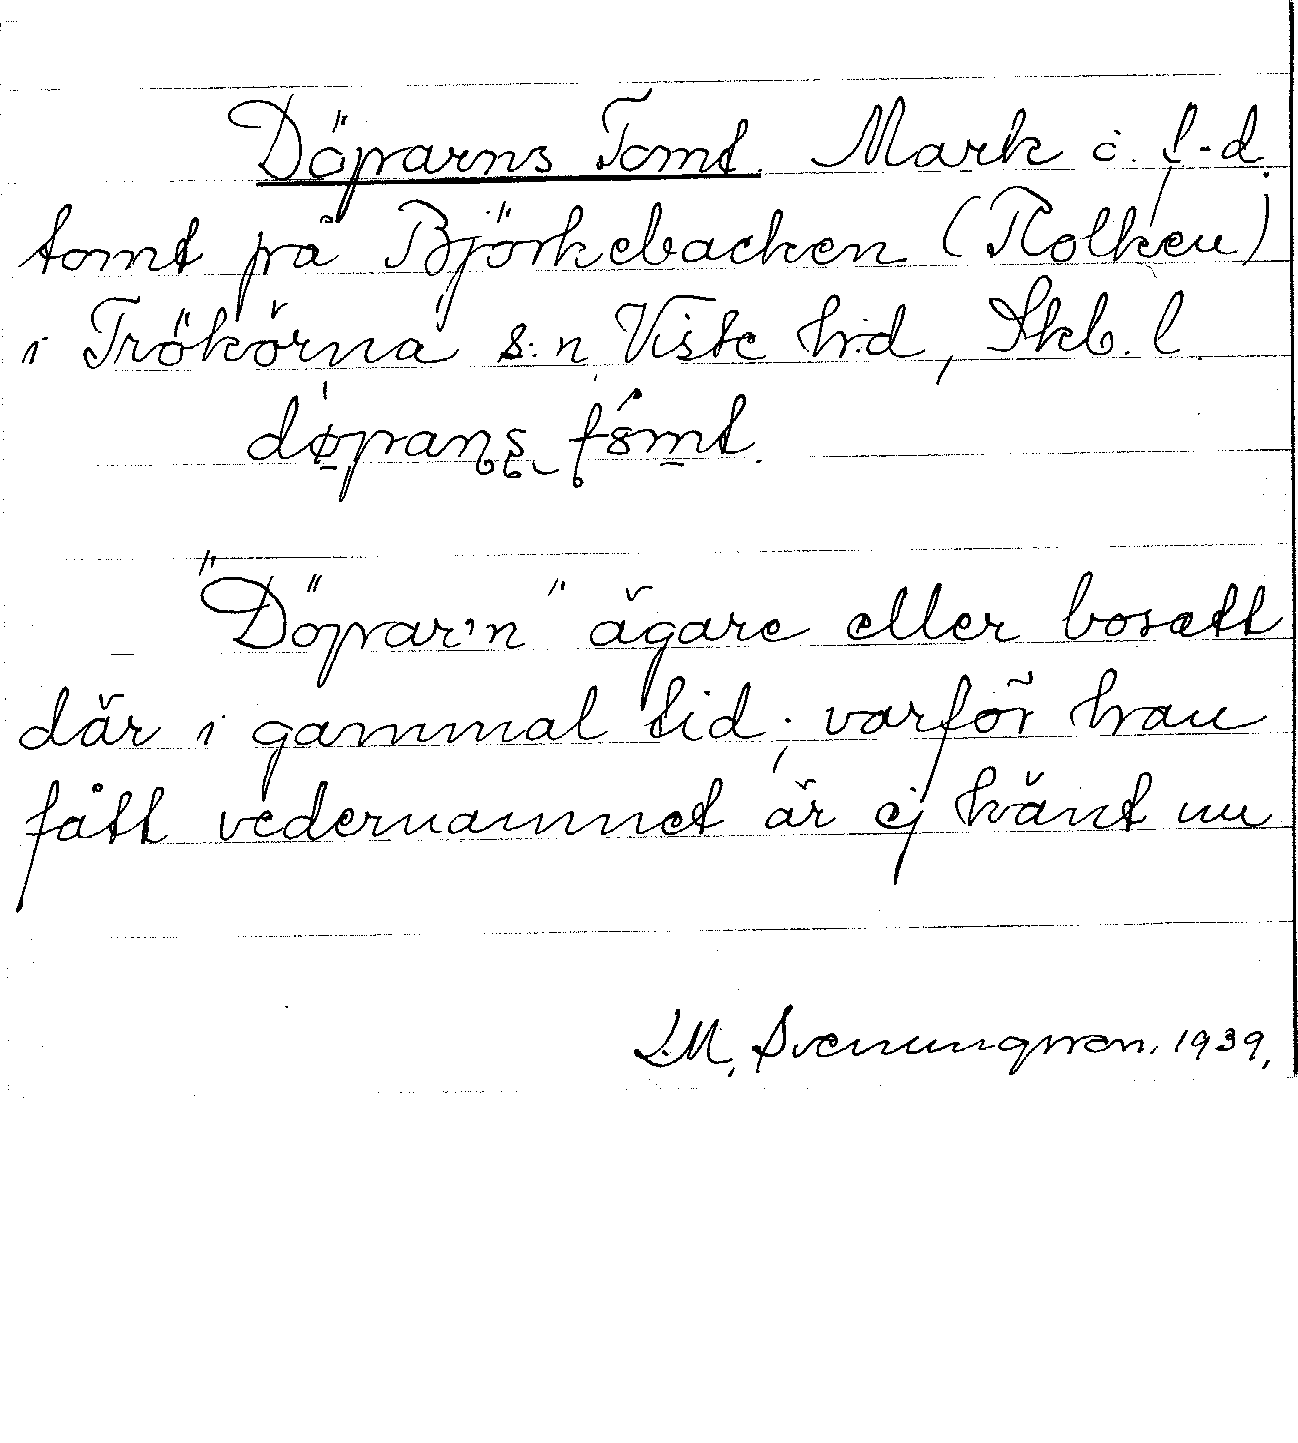 Döparns Tomt. Mark o. f.d.
tomt på Björkebacken (Rolken)
i Trökörna s:n Viste h:d, Skb. l.
"Döpar'n" ägare eller bosatt
där i gammal tid; varför han
fått vedernamnet är ej känt nu
L.M. Svenungsson. 1939.